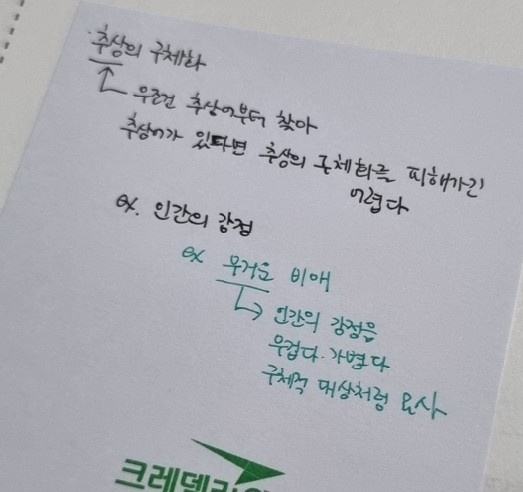 ·추상의 구체화
무조건 추상어부터 찾아
추상어가 있다면 추상의 구체화를 피해가긴
어렵다
ex. 인간의 감정
ex 무거운 비애
인간의 감정을
무겁다·가볍다
구체적 대상처럼 묘사
크레델